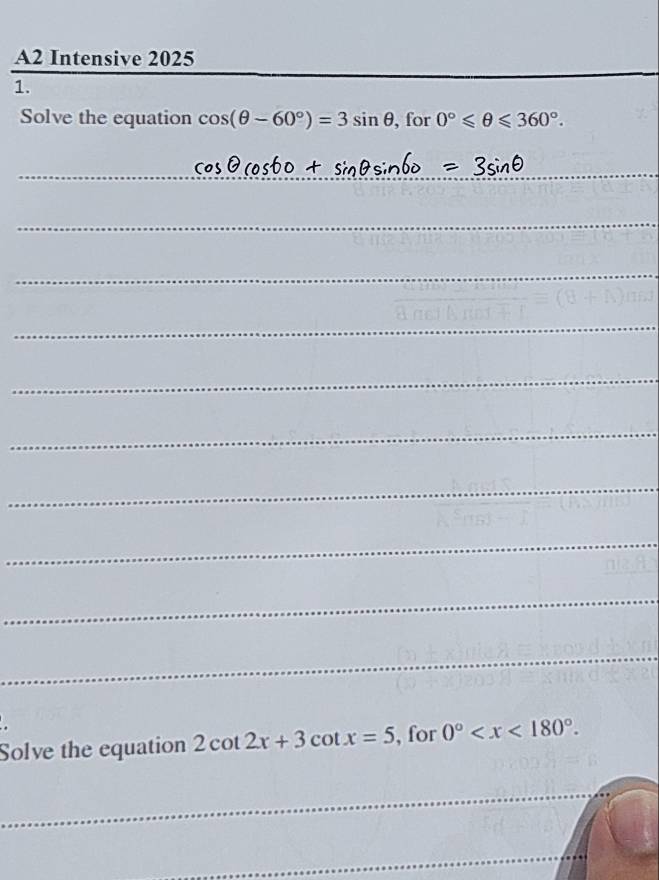 A2 Intensive 2025
1.
Solve the equation cos(θ − 60°) = 3 sin θ, for 0° ⩽ θ ⩽ 360°.
cosθcos60 + sinθsin60 = 3sinθ
2.
Solve the equation 2 cot 2x + 3 cot x = 5, for 0° < x < 180°.